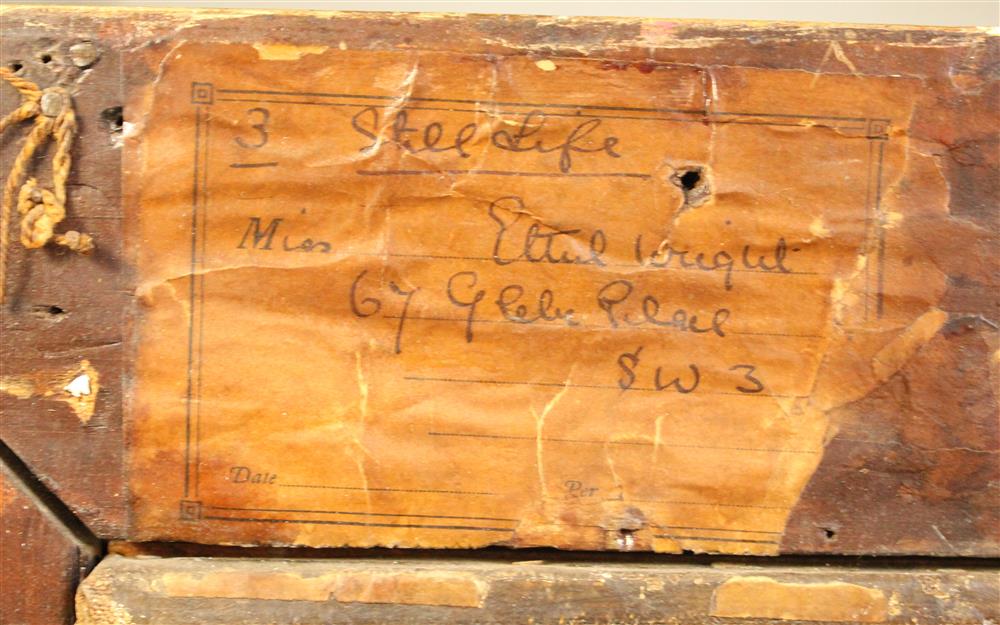 3 Still Life
Miss Ethel Wright
67 Glebe Place
SW 3
Date
Per